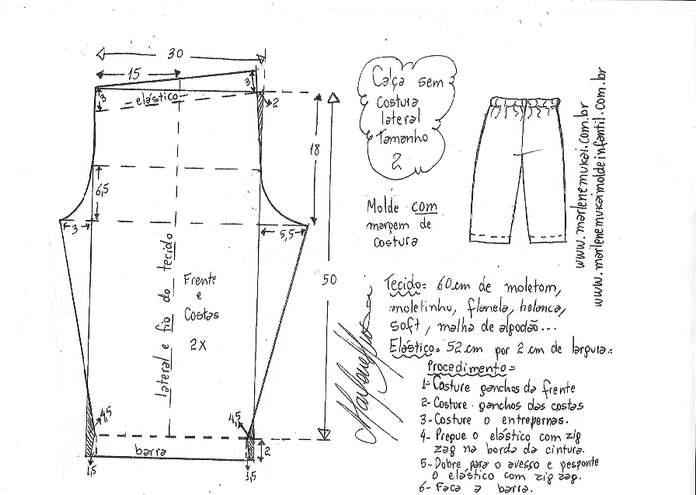 30
15
3
3
elástico
2
18
6,5
3
5,5
50
lateral e fio do tecido
Frente
e
Costas
2X
4,5
4,5
barra
1,5
1,5
2
Calça sem
costura
lateral
Tamanho
2
Molde com
margem de
costura
www.marlenemukai.com.br
www.marlenemukaimoldeinfantil.com.br
Tecido= 60cm de moletom,
moletinho, flanela, helanca,
soft, malha de algodão...
Elástico= 52cm por 2cm de largura.
Procedimento=
1- Costure ganchos da frente
2- Costure ganchos das costas
3- Costure o entrepernas.
4- Pregue o elástico com zig
zag na borda da cintura.
5- Dobre para o avesso e pesponte
o elástico com zig zag.
6- Faça a barra.